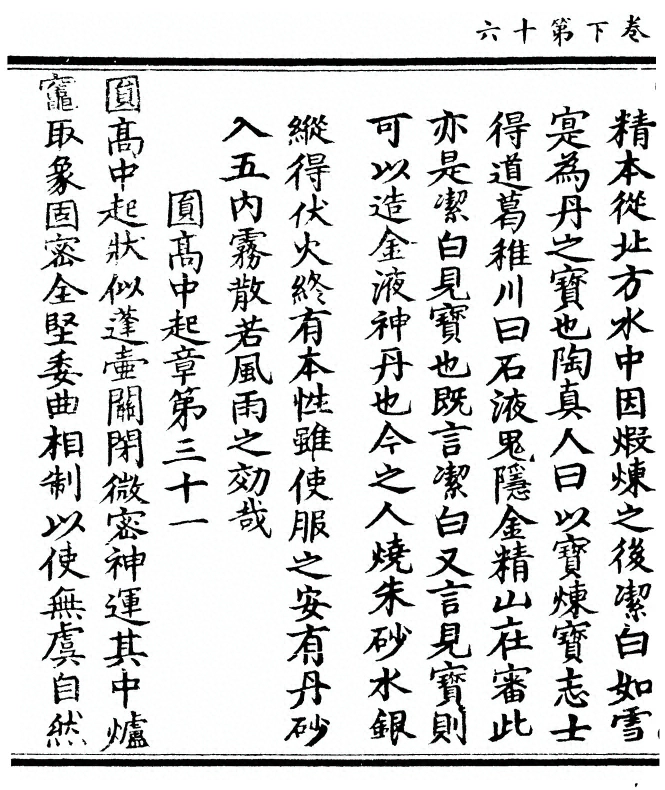 卷下第十六
精本從北方水中因煆煉之後潔白如雪
寔為丹之寶也陶真人曰以寶煉寶志士
得道葛稚川曰石液鬼隱金精山在審此
亦是潔白見寶也既言潔白又言見寶則
可以造金液神丹也今之人燒朱砂水銀
縱得伏火終有本性雖使服之安有丹砂
入五內霧散若風雨之効哉
圎高中起章第三十一
圎髙中起狀似蓬壷關閉微密神運其中爐
竈取象固密全堅委曲相制以使無虞自然